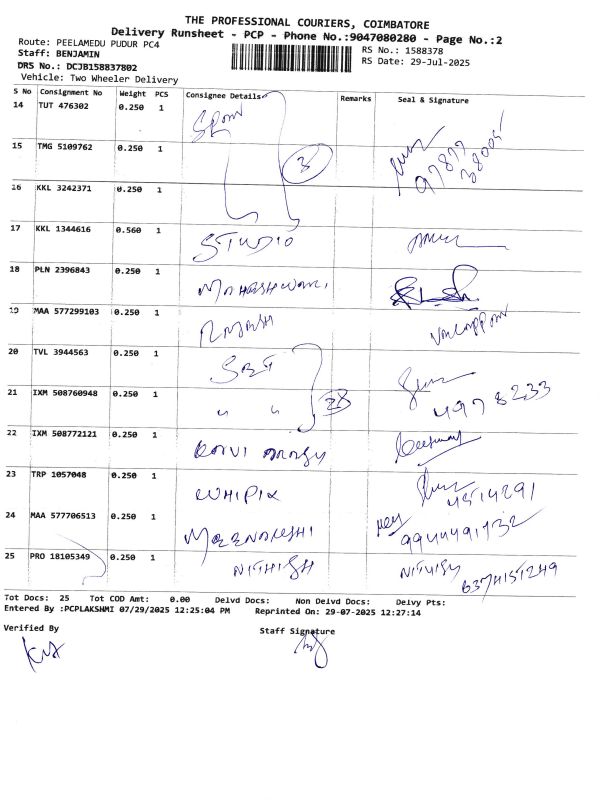 THE PROFESSIONAL COURIERS, COIMBATORE
Delivery Runsheet - PCP - Phone No.:9047080280 - Page No.:2
Route: PEELAMEDU PUDUR PC4
RS No.: 1588378
Staff: BENJAMIN
RS Date: 29-Jul-2025
DRS No.: DCJB158837802
Vehicle: Two Wheeler Delivery
S No Consignment No Weight PCS Consignee Details Remarks Seal & Signature
14 TUT 476302 0.250 1
15 TMG 5109762 0.250 1 3
16 KKL 3242371 0.250 1
17 KKL 1344616 0.560 1 STUDIO
18 PLN 2396843 0.250 1
19 MAA 577299103 0.250 1 RAJESH
20 TVL 3944563 0.250 1
21 IXM 508760948 0.250 1 " " 28 4978233
22 IXM 508772121 0.250 1
23 TRP 1057048 0.250 1 WHIPIX 4514291
24 MAA 577706513 0.250 1 MEENAKSHI 9944491732
25 PRO 18105349 0.250 1 NITHISH 6374151249
Tot Docs: 25 Tot COD Amt: 0.00 Delvd Docs: Non Delvd Docs: Delvy Pts:
Entered By :PCPLAKSHMI 07/29/2025 12:25:04 PM Reprinted On: 29-07-2025 12:27:14
Verified By Staff Signature